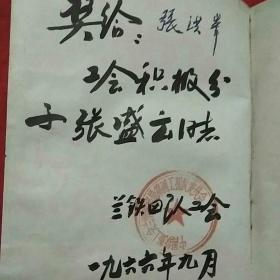 奖给：張洪峯
工会积极分
子张盛云同志
兰铁四队工会
一九六六年九月